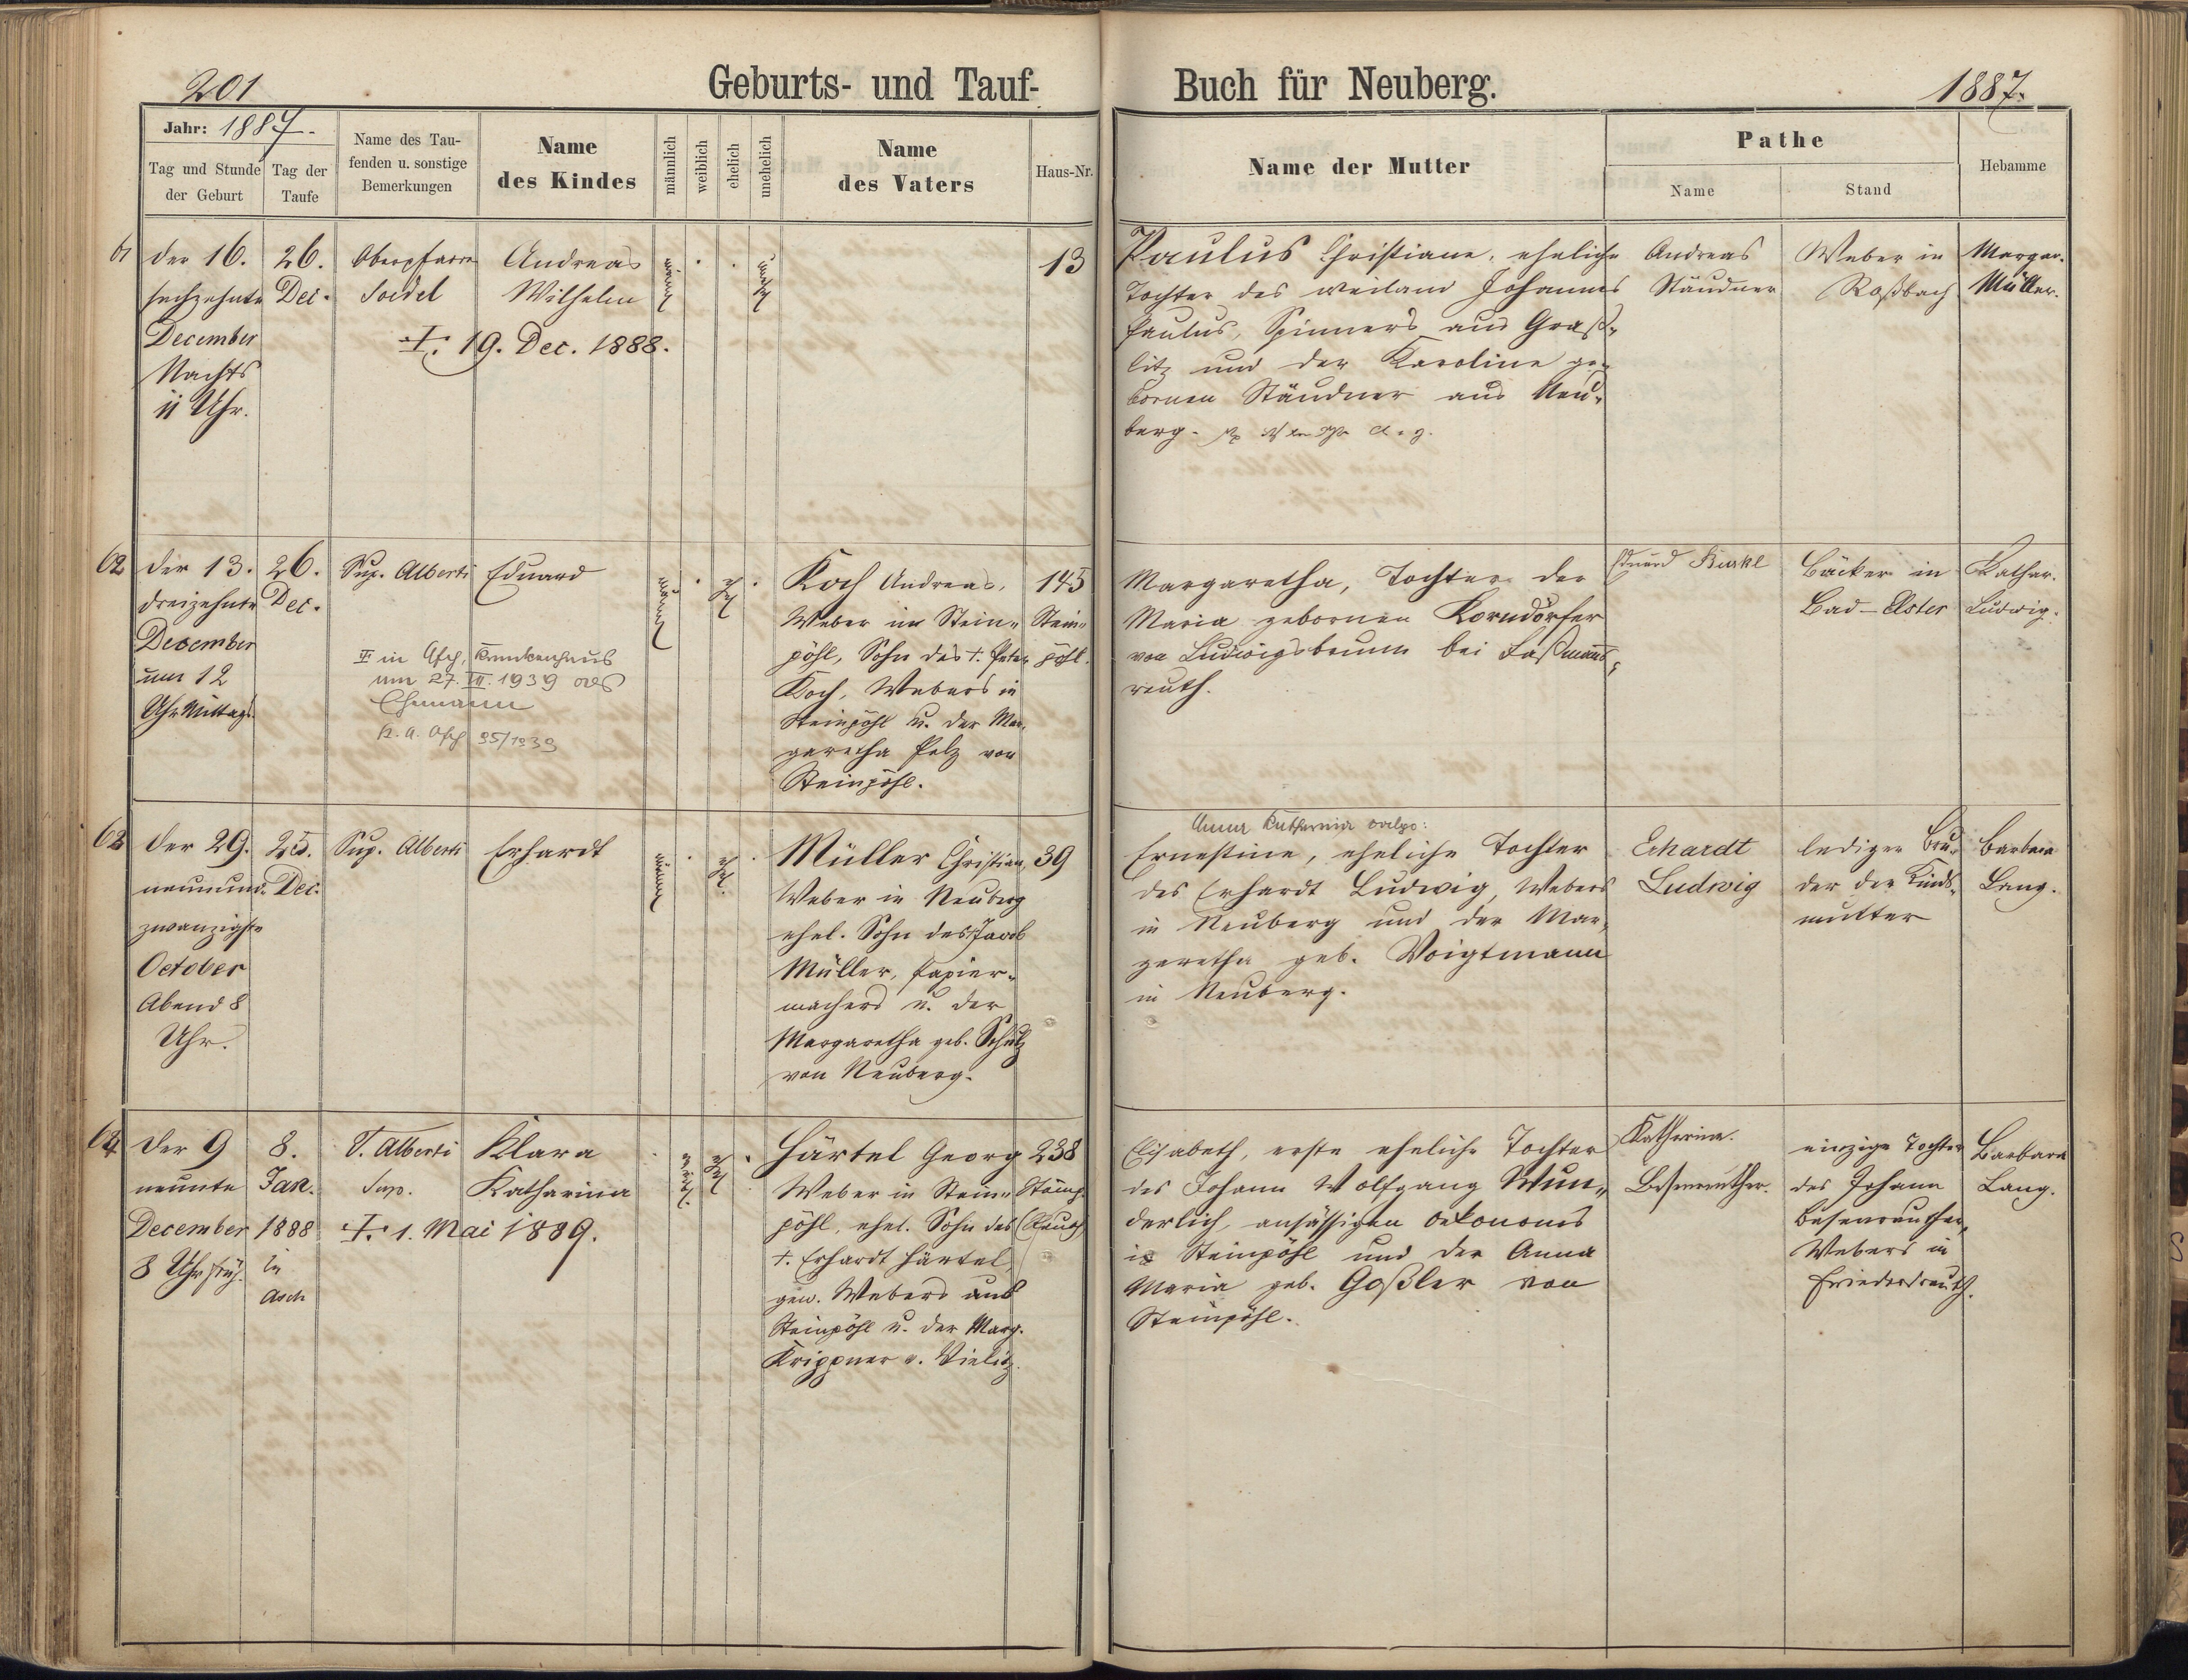 201
Geburts- und Tauf-
Buch für Neuberg.
1887.
Jahr: 1887.
Tag und Stunde
der Geburt
Tag der
Taufe
Name des Tau-
fenden u. sonstige
Bemerkungen
Name
des Kindes
männlich
weiblich
ehelich
unehelich
Name
des Vaters
Haus-Nr.
Name der Mutter
Pathe
Name
Stand
Hebamme
61
der 16.
sechzehnte
December
Nachts
11 Uhr.
26.
Dec.
Oberpfarrer
Soedel
Andreas
Wilhelm
†. 19. Dec. 1888.
männl.
unehel.
13
Paulus Christiane, eheliche
Tochter des weiland Johannes
Paulus, Spinners aus Graß-
litz und der Karoline ge-
bornen Stäudner aus Neu-
berg.
Andreas
Stäudner
Weber in
Roßbach
Margar.
Müller.
62
der 13.
dreizehnte
December
um 12
Uhr Mittags
26.
Dec.
Sup. Alberti
Eduard
in Asch, Krankenhaus
am 27. VII. 1939 als
Ehemann
Asch 95/1939
männl.
ehel.
Koch Andreas,
Weber in Stein-
pöhl, Sohn des †. Peter
Koch, Webers in
Steinpöhl u. der Mar-
garetha Pelz von
Steinpöhl.
145
Stein-
pöhl.
Margaretha, Tochter der
Maria gebornen Korndörfer
von Ludwigsbrunn bei Faßmanns-
reuth.
Eduard Künkl
Bäcker in
Bad-Elster
Kathar.
Ludwig.
63
der 29.
neunund-
zwanzigste
October
Abend 8
Uhr.
25.
Dec.
Sup. Alberti
Erhardt
männl.
ehel.
Müller Christian,
Weber in Neuberg
ehel. Sohn des Jacob
Müller, Papier-
machers u. der
Margaretha geb. Schulz
von Neuberg.
39
Anna Katharina
Ernestine, eheliche Tochter
des Erhardt Ludwig, Webers
in Neuberg und der Mar-
garetha geb. Voigtmann
in Neuberg.
Erhardt
Ludwig
lediger Bru-
der der Kinds-
mutter
Barbara
Lang.
64
der 9
neunte
December
8 Uhr früh.
8.
Jan.
1888
in
Asch
T. Alberti
Sup.
Klara
Katharina
†. 1. Mai 1889.
weibl.
ehel.
Härtel Georg
Weber in Stein-
pöhl, ehel. Sohn des
†. Erhardt Härtel,
gew. Webers aus
Steinpöhl u. der Marg.
Krippner v. Vielitz.
238
Elisabeth, erste eheliche Tochter
des Johann Wolfgang Wun-
derlich, ansässigen Oekonoms
in Steinpöhl und der Anna
Maria geb. Goßler von
Steinpöhl.
Katharina
Besenreuther.
einzige Tochter
des Johann
Besenreuther,
Webers in
Friedersreuth.
Barbara
Lang.